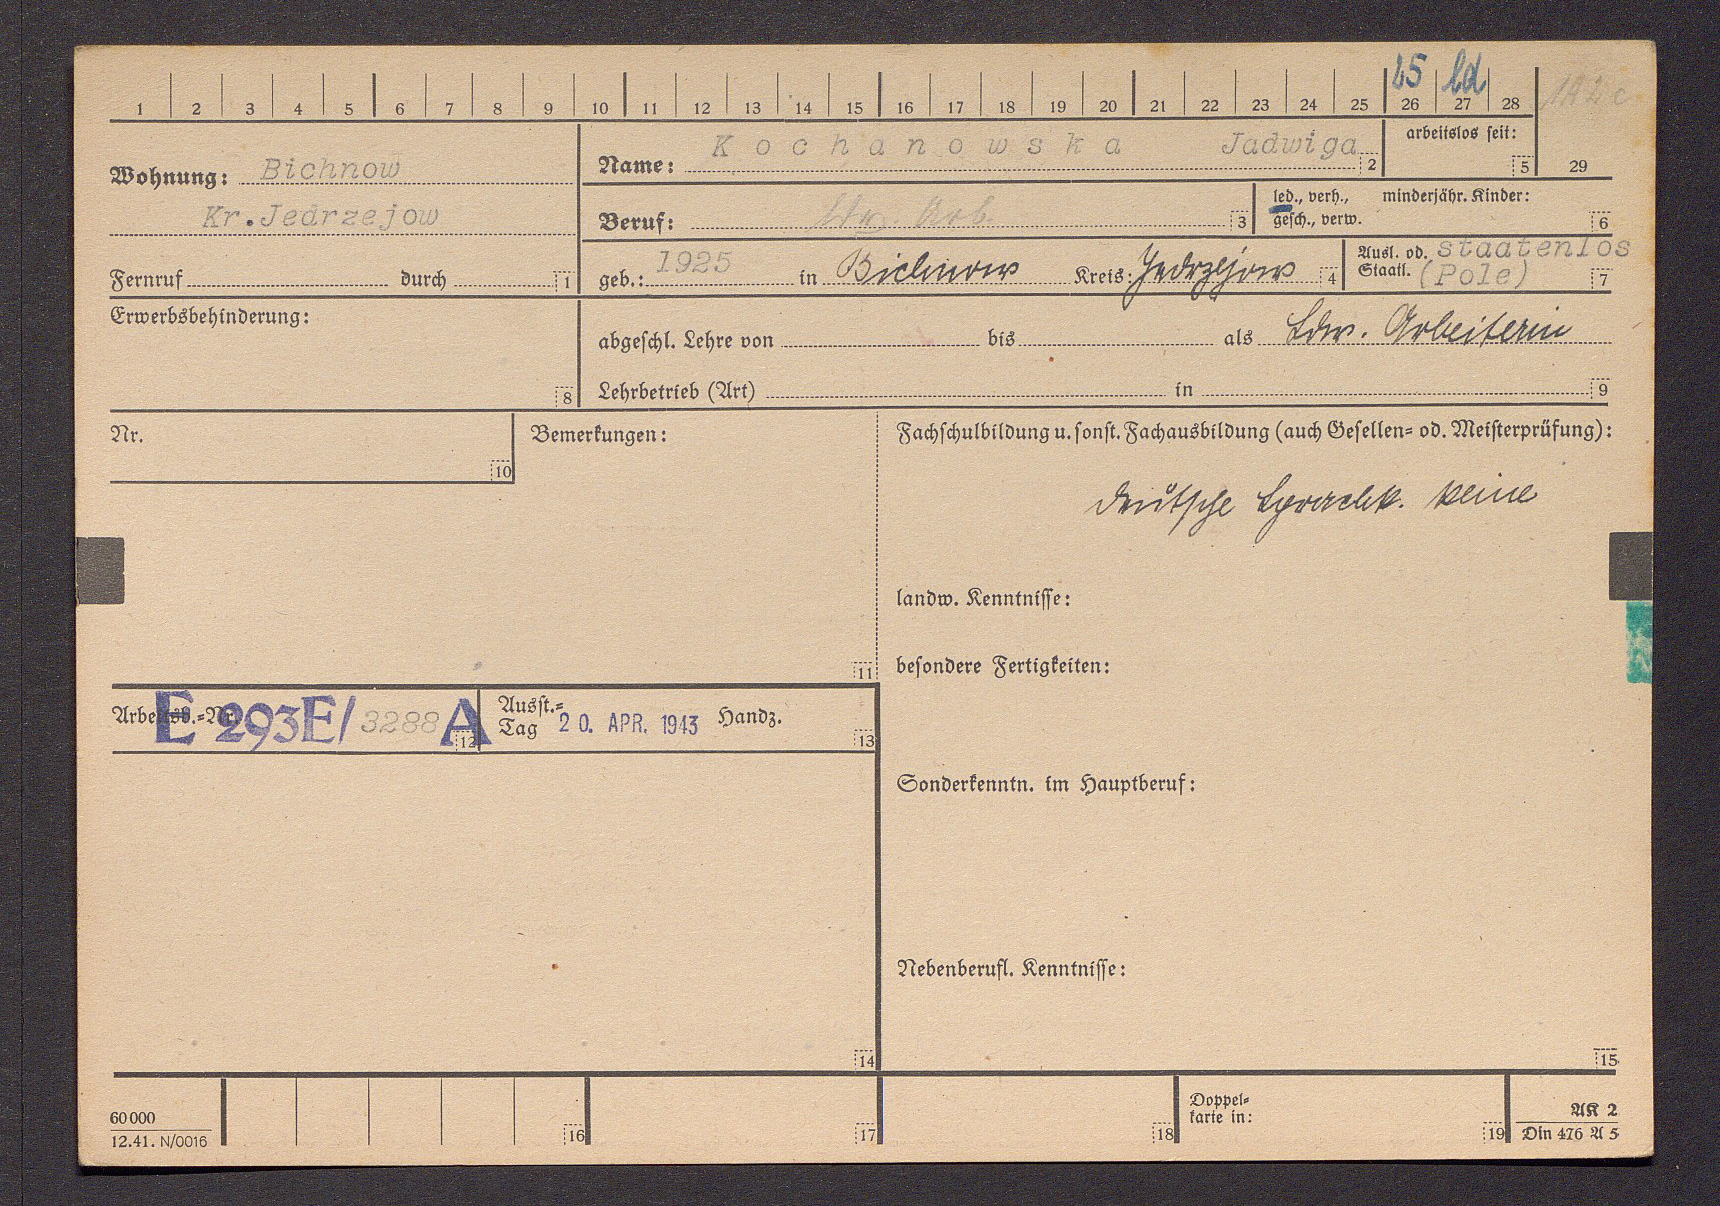 25 ld
1 2 3 4 5 6 7 8 9 10 11 12 13 14 15 16 17 18 19 20 21 22 23 24 25 26 27 28
29
Wohnung: Bichnow
Kr.Jedrzejow
Fernruf durch 1
Name: Kochanowska Jadwiga 2
arbeitslos seit:
5
Beruf: Arb. 3
led., verh., minderjähr. Kinder:
gesch., verw. 6
geb.: 1925 in Bichnow Kreis: Jedrzejow 4
Ausl. od. staatenlos
Staatl. (Pole) 7
Erwerbsbehinderung:
8
abgeschl. Lehre von bis als Ldw. Arbeiterin
Lehrbetrieb (Art) in 9
Nr.
10
Bemerkungen:
11
Fachschulbildung u. sonst. Fachausbildung (auch Gesellen= od. Meisterprüfung):
deutsche Sprachk. keine
landw. Kenntnisse:
besondere Fertigkeiten:
Sonderkenntn. im Hauptberuf:
Nebenberufl. Kenntnisse:
15
Arbeitsb.=Nr. E 293E/3288 A 12
Ausst.=
Tag 20. APR. 1943 Handz. 13
14
60000
12.41. N/0016
16
17
18
Doppel=
karte in:
19
AK 2
Din 476 A 5